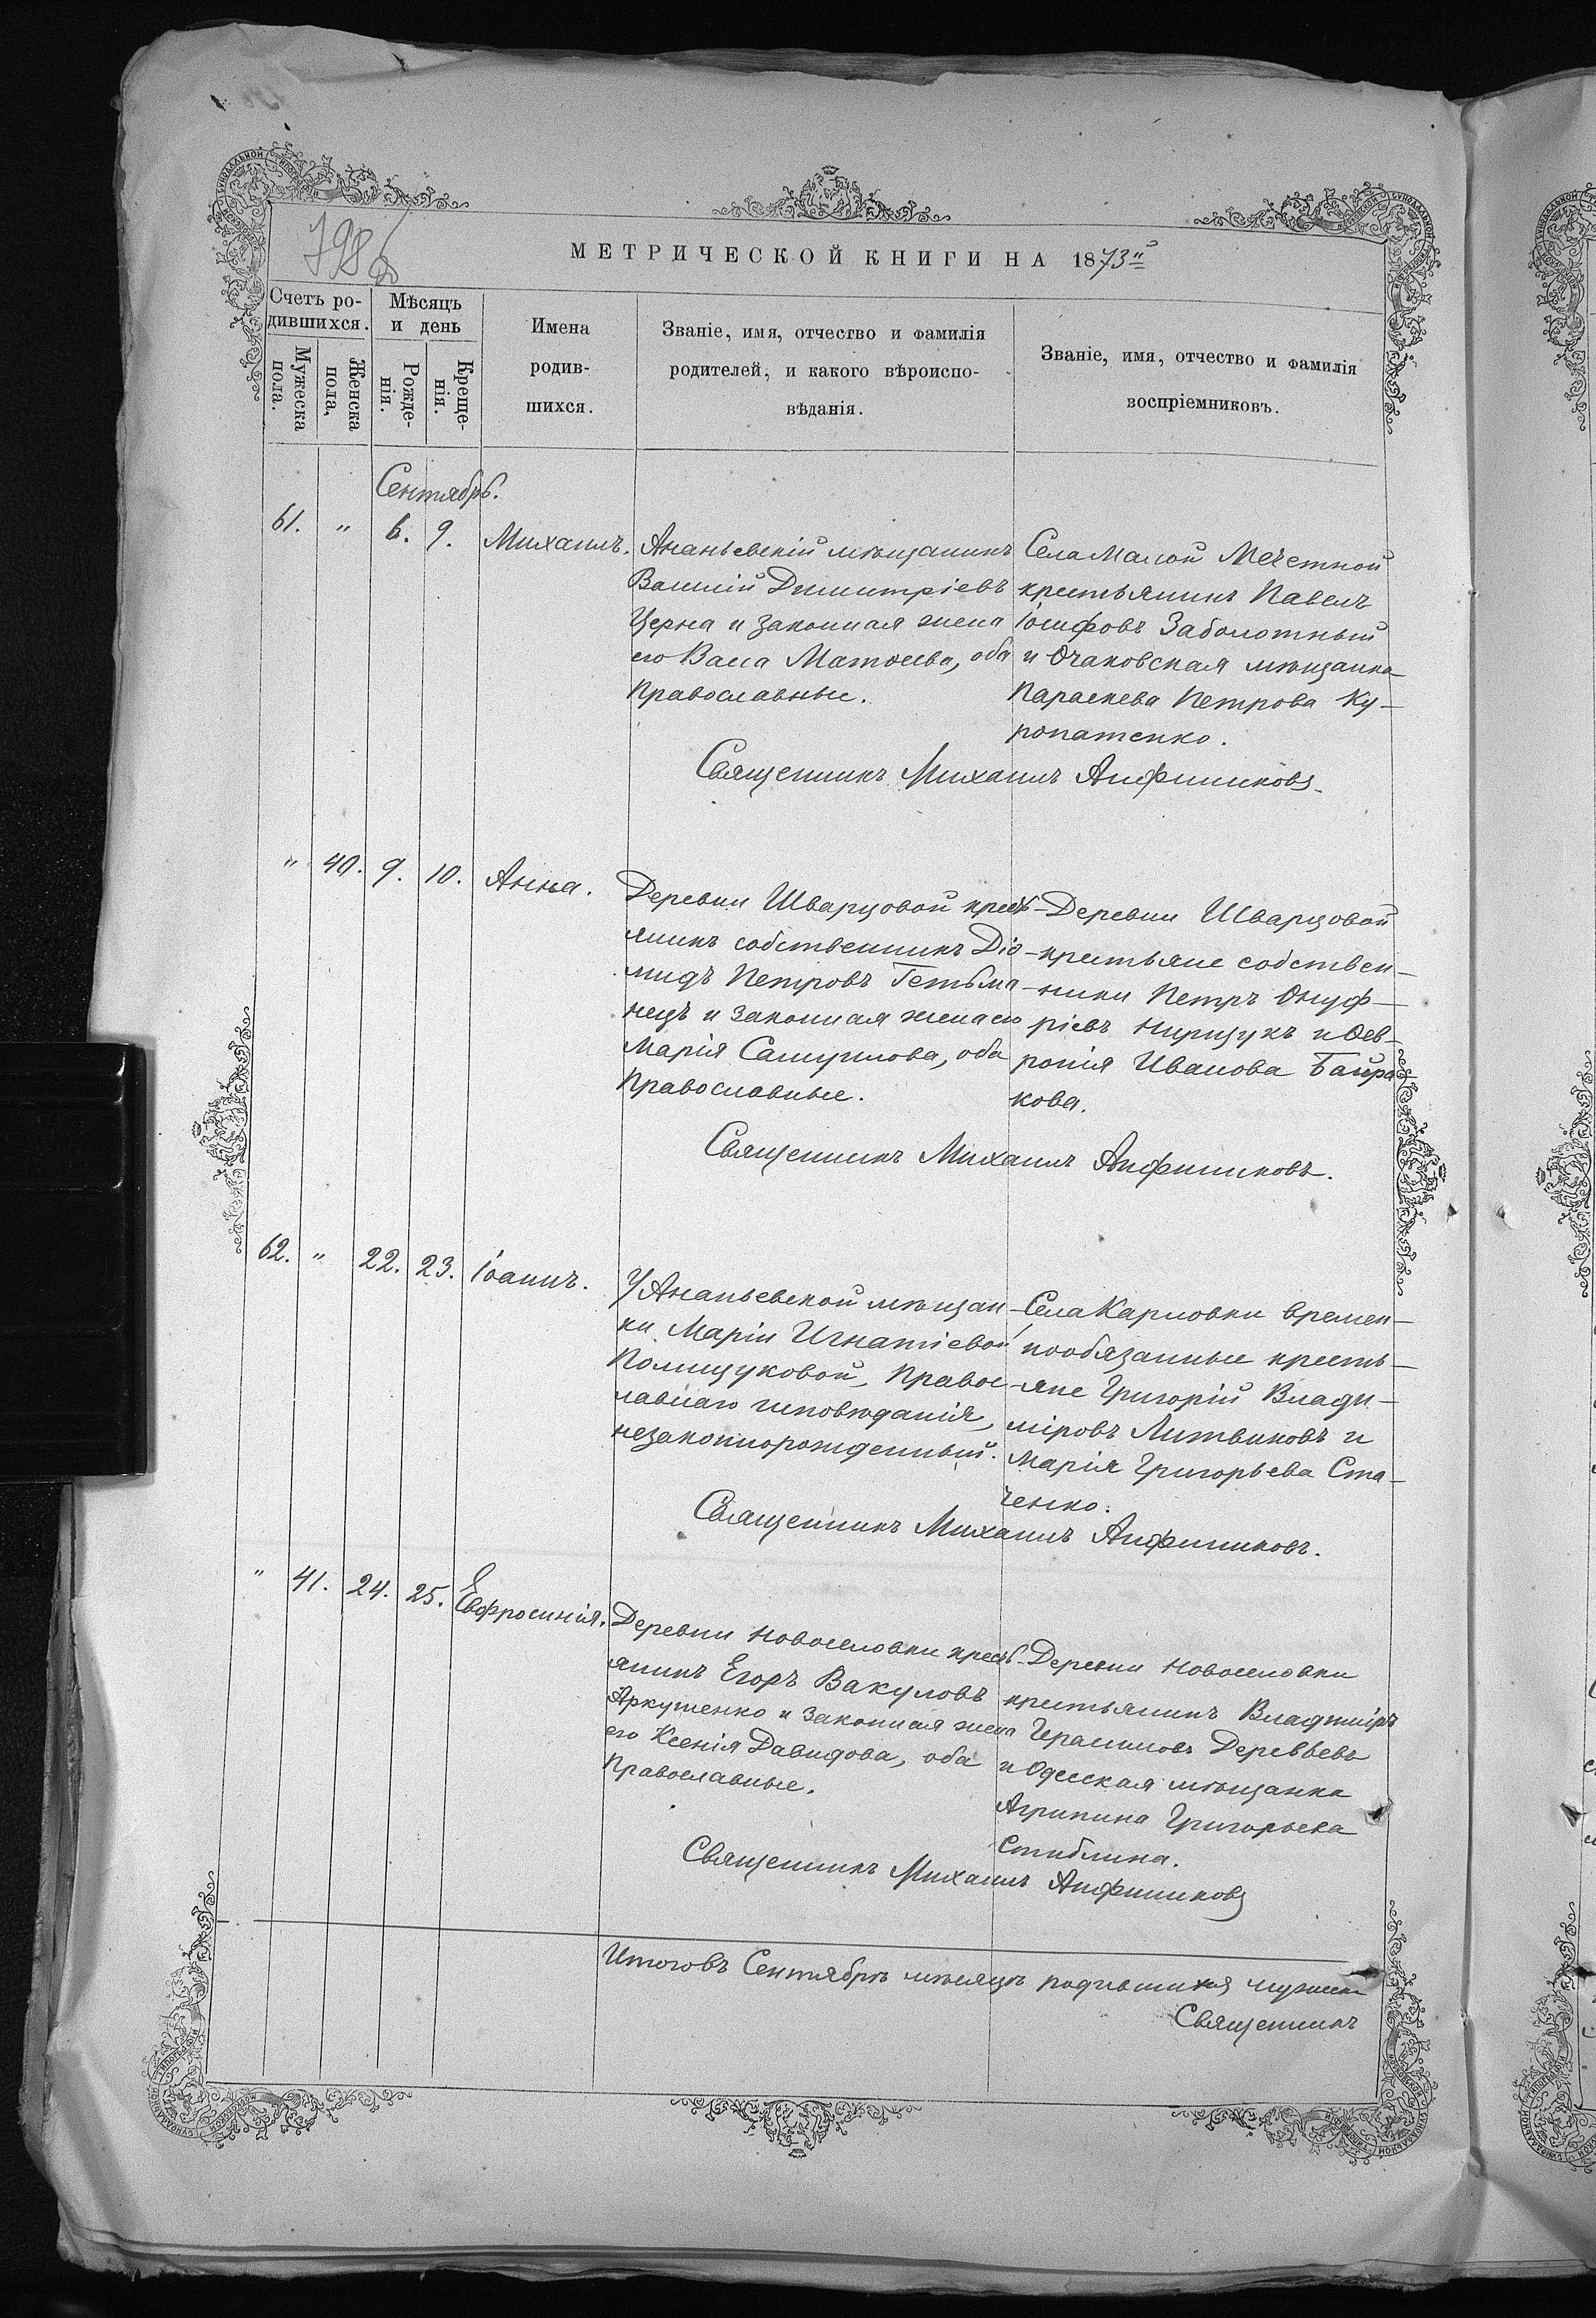 798
МЕТРИЧЕСКОЙ КНИГИ НА 1873й
Счетъ ро-
дившихся.
Мѣсяцъ
и день
Мужеска
пола.
Женска
пола,
Рожде-
нія.
Креще-
нія.
Имена
родив-
шихся.
Званіе, имя, отчество и фамилія
родителей, и какого вѣроиспо-
вѣданія.
Званіе, имя, отчество и фамилія
воспріемниковъ.
Сентябрь.
61. " 6. 9. Михаилъ.
Ананьевскій мѣщанинъ
Василій Димитріевъ
Церна и законная жена
его Васса Матѳеева, оба
Православные.
Села Малой Мечетной
крестьянинъ Павелъ
Іосифовъ Заболотный
и Очаковская мѣщанка
Параскева Петрова Ку-
ропатенко.
Священникъ Михаилъ Анфиниковъ.
" 40. 9. 10. Анна.
Деревни Шварцовой кресть-
янинъ собственникъ Діо-
мидъ Петровъ Гетьма-
нецъ и законная жена его
Марія Самуилова, оба
Православные.
Деревни Шварцовой
крестьяне собствен-
ники Петръ Онуф-
ріевъ Нирцукъ и Фев-
ронія Иванова Байра
кова.
Священникъ Михаилъ Анфиниковъ.
62. " 22. 23. Іоаннъ.
У Ананьевской мѣщан-
ки Маріи Игнатіевой
Полищуковой, Правос-
лавнаго исповѣданія,
незаконнорожденный.
Села Карловки времен-
нообязанные кресть-
яне Григорій Влади-
міровъ Литвиновъ и
Марія Григорьева Ста-
ченко.
Священникъ Михаилъ Анфиниковъ.
" 41. 24. 25. Евфросинія.
Деревни Новоселовки кресть-
янинъ Егоръ Вакуловъ
Аркушенко и законная жена
его Ксенія Давидова, оба
Православные.
Деревни Новоселовки
крестьянинъ Владиміръ
Герасимовъ Деревьевъ
и Одесская мѣщанка
Агрипина Григорьева
Стиблина.
Священникъ Михаилъ Анфиниковъ
Итого въ Сентябрѣ мѣсяцѣ родившихся мужеска
Священникъ